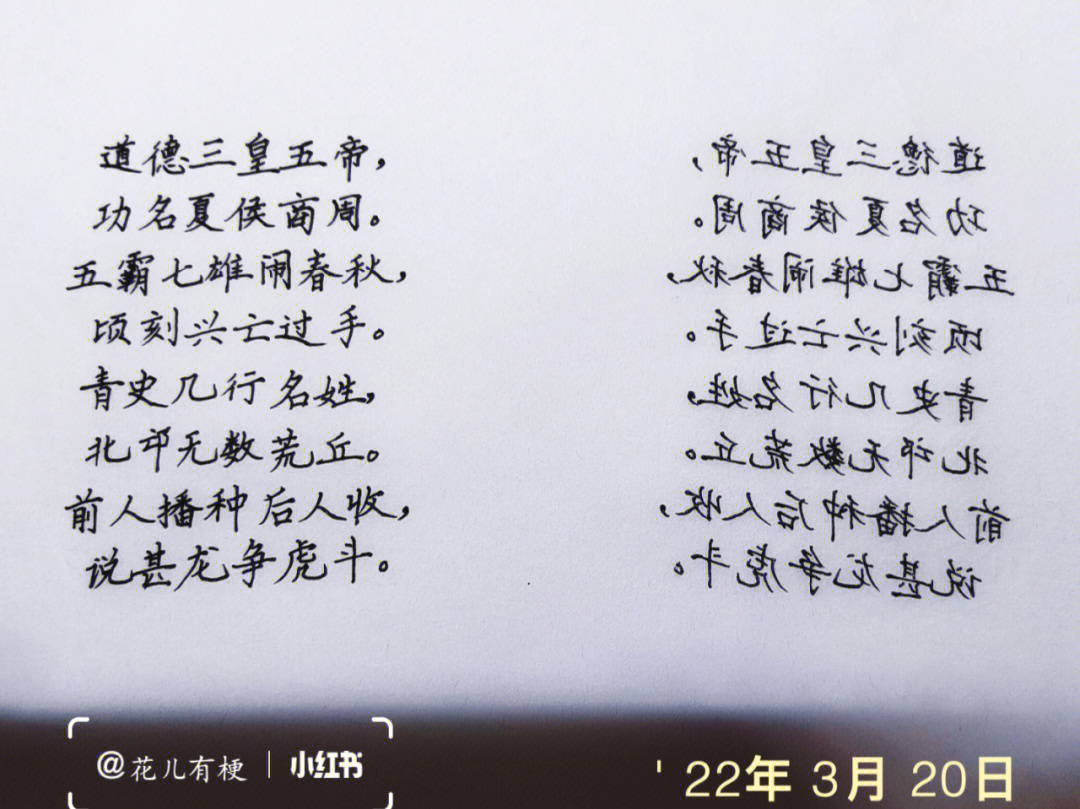 道德三皇五帝，
功名夏侯商周。
五霸七雄闹春秋，
顷刻兴亡过手。
青史几行名姓，
北邙无数荒丘。
前人播种后人收，
说甚龙争虎斗。
道德三皇五帝，
功名夏侯商周。
五霸七雄闹春秋，
顷刻兴亡过手。
青史几行名姓，
北邙无数荒丘。
前人播种后人收，
说甚龙争虎斗。
@花儿有梗 | 小红书
'22年 3月 20日